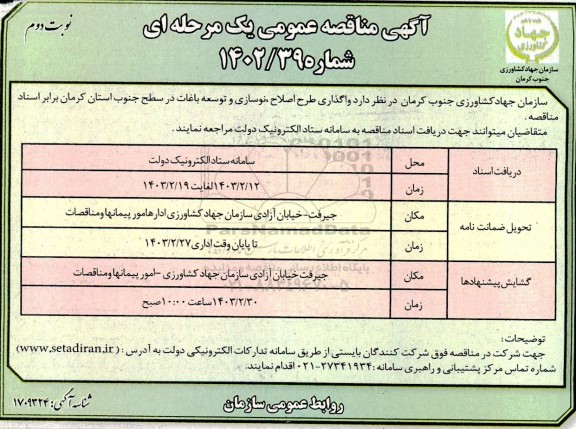 آگهی مناقصه عمومی یک مرحله ای
شماره ۱۴۰۲/۳۹
نوبت دوم
جهاد
کشاورزی
سازمان جهاد کشاورزی
جنوب کرمان
سازمان جهاد کشاورزی جنوب کرمان در نظر دارد واگذاری طرح اصلاح ،نوسازی و توسعه باغات در سطح جنوب استان کرمان برابر اسناد
مناقصه .
متقاضیان میتوانند جهت دریافت اسناد مناقصه به سامانه ستاد الکترونیک دولت مراجعه نمایند .
دریافت اسناد
محل
سامانه ستاد الکترونیک دولت
زمان
۱۴۰۳/۲/۱۲ لغایت ۱۴۰۳/۲/۱۹
تحویل ضمانت نامه
مکان
جیرفت- خیابان آزادی سازمان جهاد کشاورزی اداره امور پیمانها و مناقصات
زمان
تا پایان وقت اداری ۱۴۰۳/۲/۲۷
گشایش پیشنهادها
مکان
جیرفت خیابان آزادی سازمان جهاد کشاورزی -امور پیمانها و مناقصات
زمان
۱۴۰۳/۲/۳۰ ساعت ۱۰:۰۰ صبح
ParsNamadData
توضیحات :
جهت شرکت در مناقصه فوق شرکت کنندگان بایستی از طریق سامانه تدارکات الکترونیکی دولت به آدرس : (www.setadiran.ir)
شماره تماس مرکز پشتیبانی و راهبری سامانه : ۲۷۳۴۱۹۳۴-۰۲۱ اقدام نمایند.
روابط عمومی سازمان
شناسه آگهی: ۱۷۰۹۳۲۴